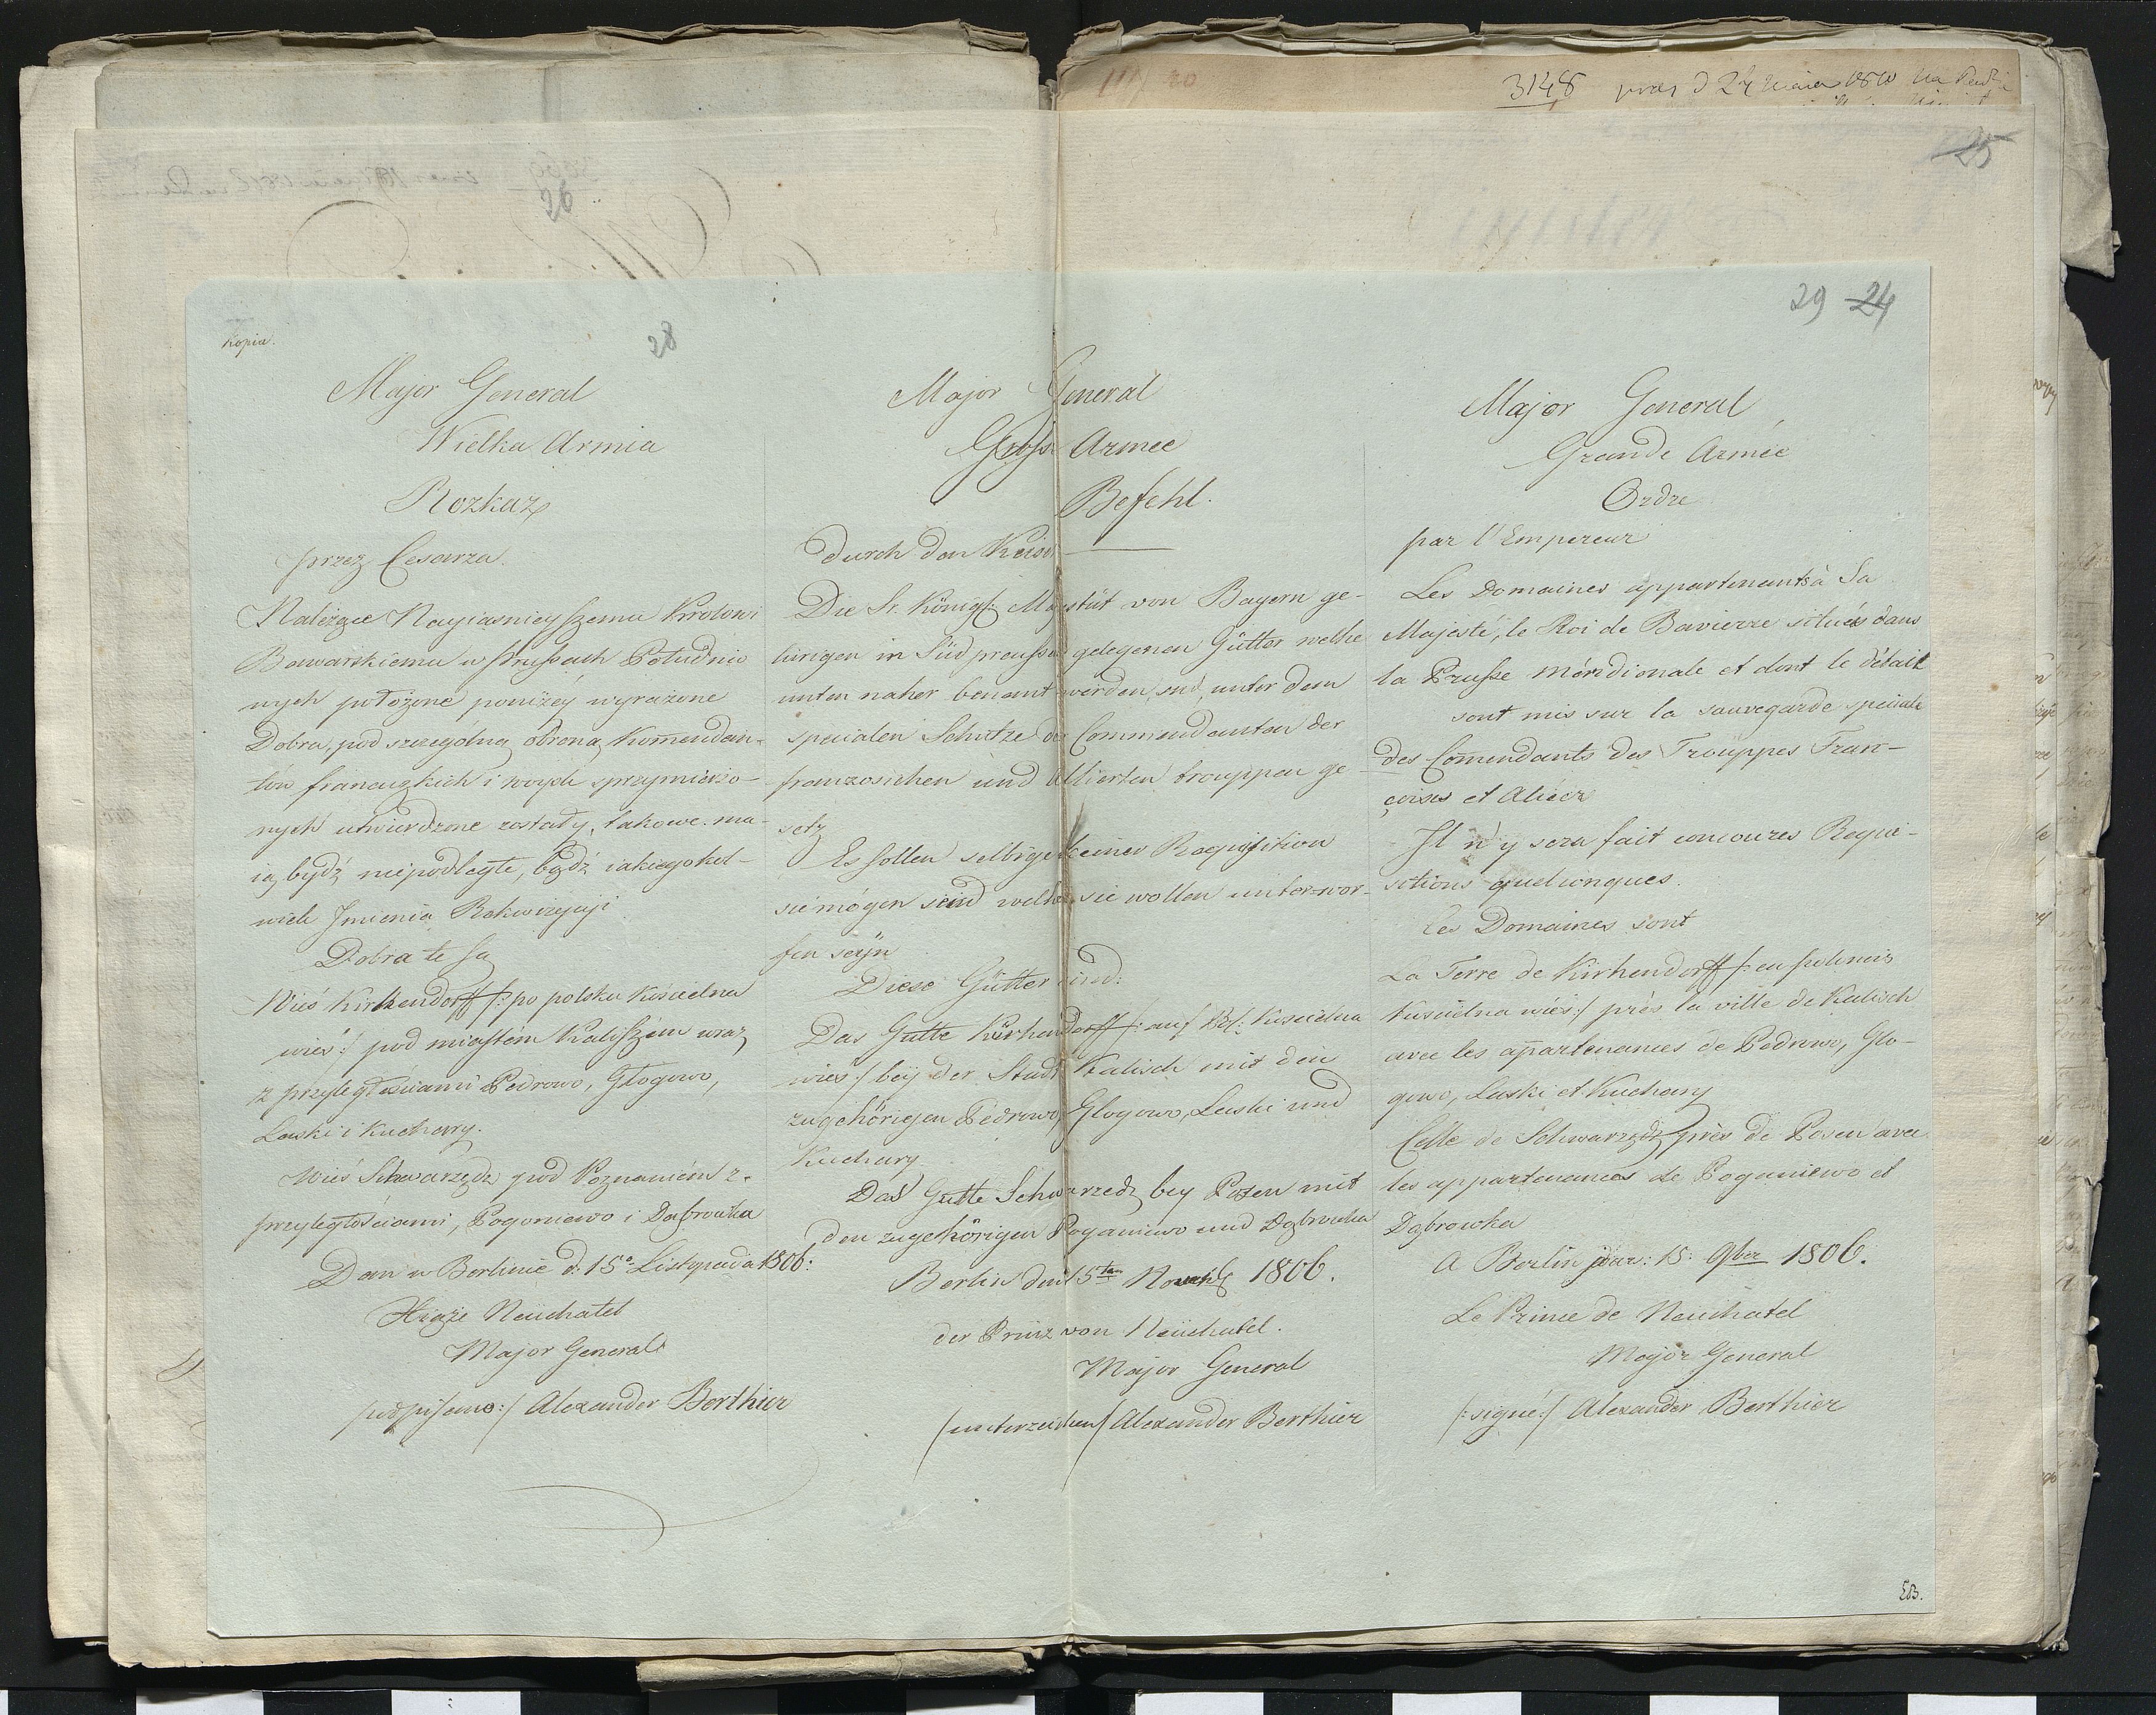 3148
25
26
29 24
28
Kopia.
Major General
Wielka Armia
Rozkaz
przez Cesarza.
Należące Nayiasnieyszemu Krolowi
Bawarskiemu w Prussach Południo
wych położone poniżey wyrażone
Dobra, pod szczegolną obroną Komendan-
tów francuzkich i woysk sprzymierzo-
nych utwierdzone zostały, takowe ma-
ią bydź niepodległe, bądź iakiegokol-
wiek Jmienia Rekwizycyi
Dobra te są
Wieś Kirkendorff /: po polsku Koscielna
wieś :/ pod miastem Kaliszem wraz
z przyległościami Pedrowo, Głogowo,
Laski i Kuchary.
Wieś Schwarzędz pod Poznaniem z
przyległościami, Pogoniewo i Dąbrowka
Dan w Berlinie d. 15º Listopada 1806:
Xiąże Neuchatel
Major General
/podpisano:/ Alexander Berthier
Major General
Grosse Armee
Befehl.
Durch den Keiser
Die Sr. Königl: Majestät von Bayern ge-
hörigen in Südpreussen gelegenen Gütter welche
unten naher benant werden, sind, unter dem
specialen Schutze der Commendanten der
französischen und Allierten trouppen ge-
setz
Es sollen selbige keiner Requisition
sie mögen seind welche sie wollen unterwor-
fen seÿn
Diese Gütter sind:
Das Gutte Kürhendorff /: auf Pol: Koscielna
wies :/ beÿ der Stadt Kalisch mit den
zugehörigen Pedrowo, Glogowo, Laski und
Kuchary
Das Gutte Schwarzedz bey Posen mit
den zugehörigen Poganiewo und Dąbrowka
Berlin den 15ten Novemb 1806.
der Prinz von Neuchatel.
Major General
/unterzeichen/ Alexander Berthier
Major General
Grande Armée
Ordre
par l'Empereur
Les Domaines appartenants à Sa
Majesté, le Roi de Bavierre situés dans
la Prusse méridionale et dont le détail
sont mis sur la sauvegarde speciale
des Comendants des Trouppes Fran-
çoises et Aliées
Il n'y sera fait encoures Requi-
sitions quelconques.
Les Domaines sont
La Terre de Kirhendorff /: en polonois
Kuscielna wieś :/ près la ville de Kalisch
avec les apartenances de Pedrowo, Glo-
gowo, Laski et Kuchary
Celle de Schwarzędz près de Posen avec
les appartenances de Poganiewo et
Dąbrowka
A Berlin 15: 9bre 1806.
Le Prince de Neuchatel
Major General
/:signé:/ Alexander Berthier